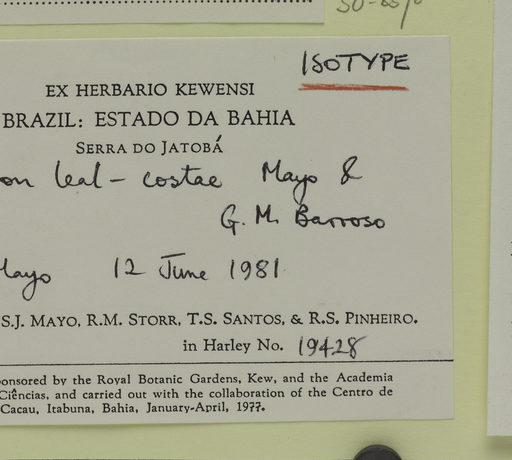 ISOTYPE
EX HERBARIO KEWENSI
BRAZIL: ESTADO DA BAHIA
SERRA DO JATOBÁ
on leal-costae Mayo &
G. M. Barroso
Mayo 12 June 1981
S.J. MAYO, R.M. STORR, T.S. SANTOS, & R.S. PINHEIRO.
in Harley No. 19428
onsored by the Royal Botanic Gardens, Kew, and the Academia
Ciências, and carried out with the collaboration of the Centro de
Cacau, Itabuna, Bahia, January-April, 1977.